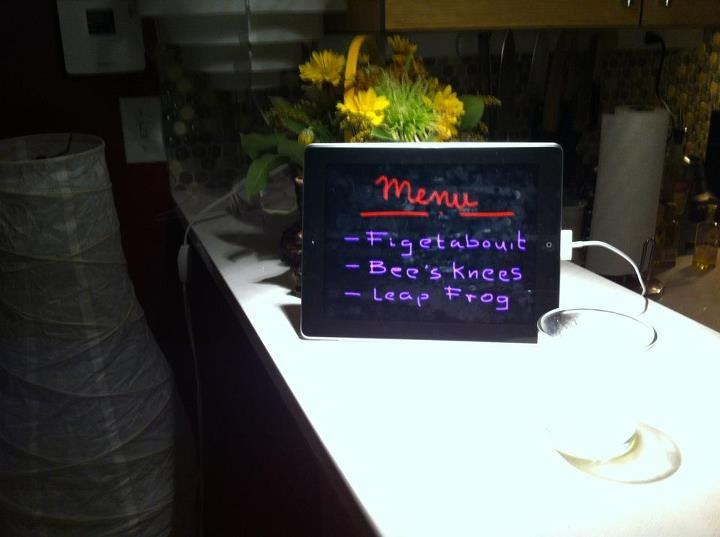 Menu
- Figetabouit
- Bee's Knees
- Leap Frog